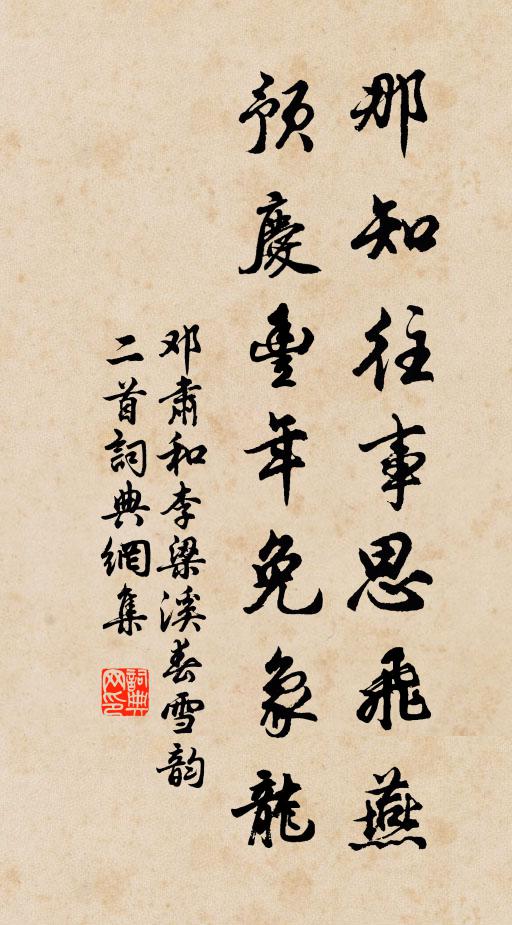 那知往事思飛燕
預慶豐年免象龍
邓肅和李梁溪春雪韵
二首詞典網集
詞典網印